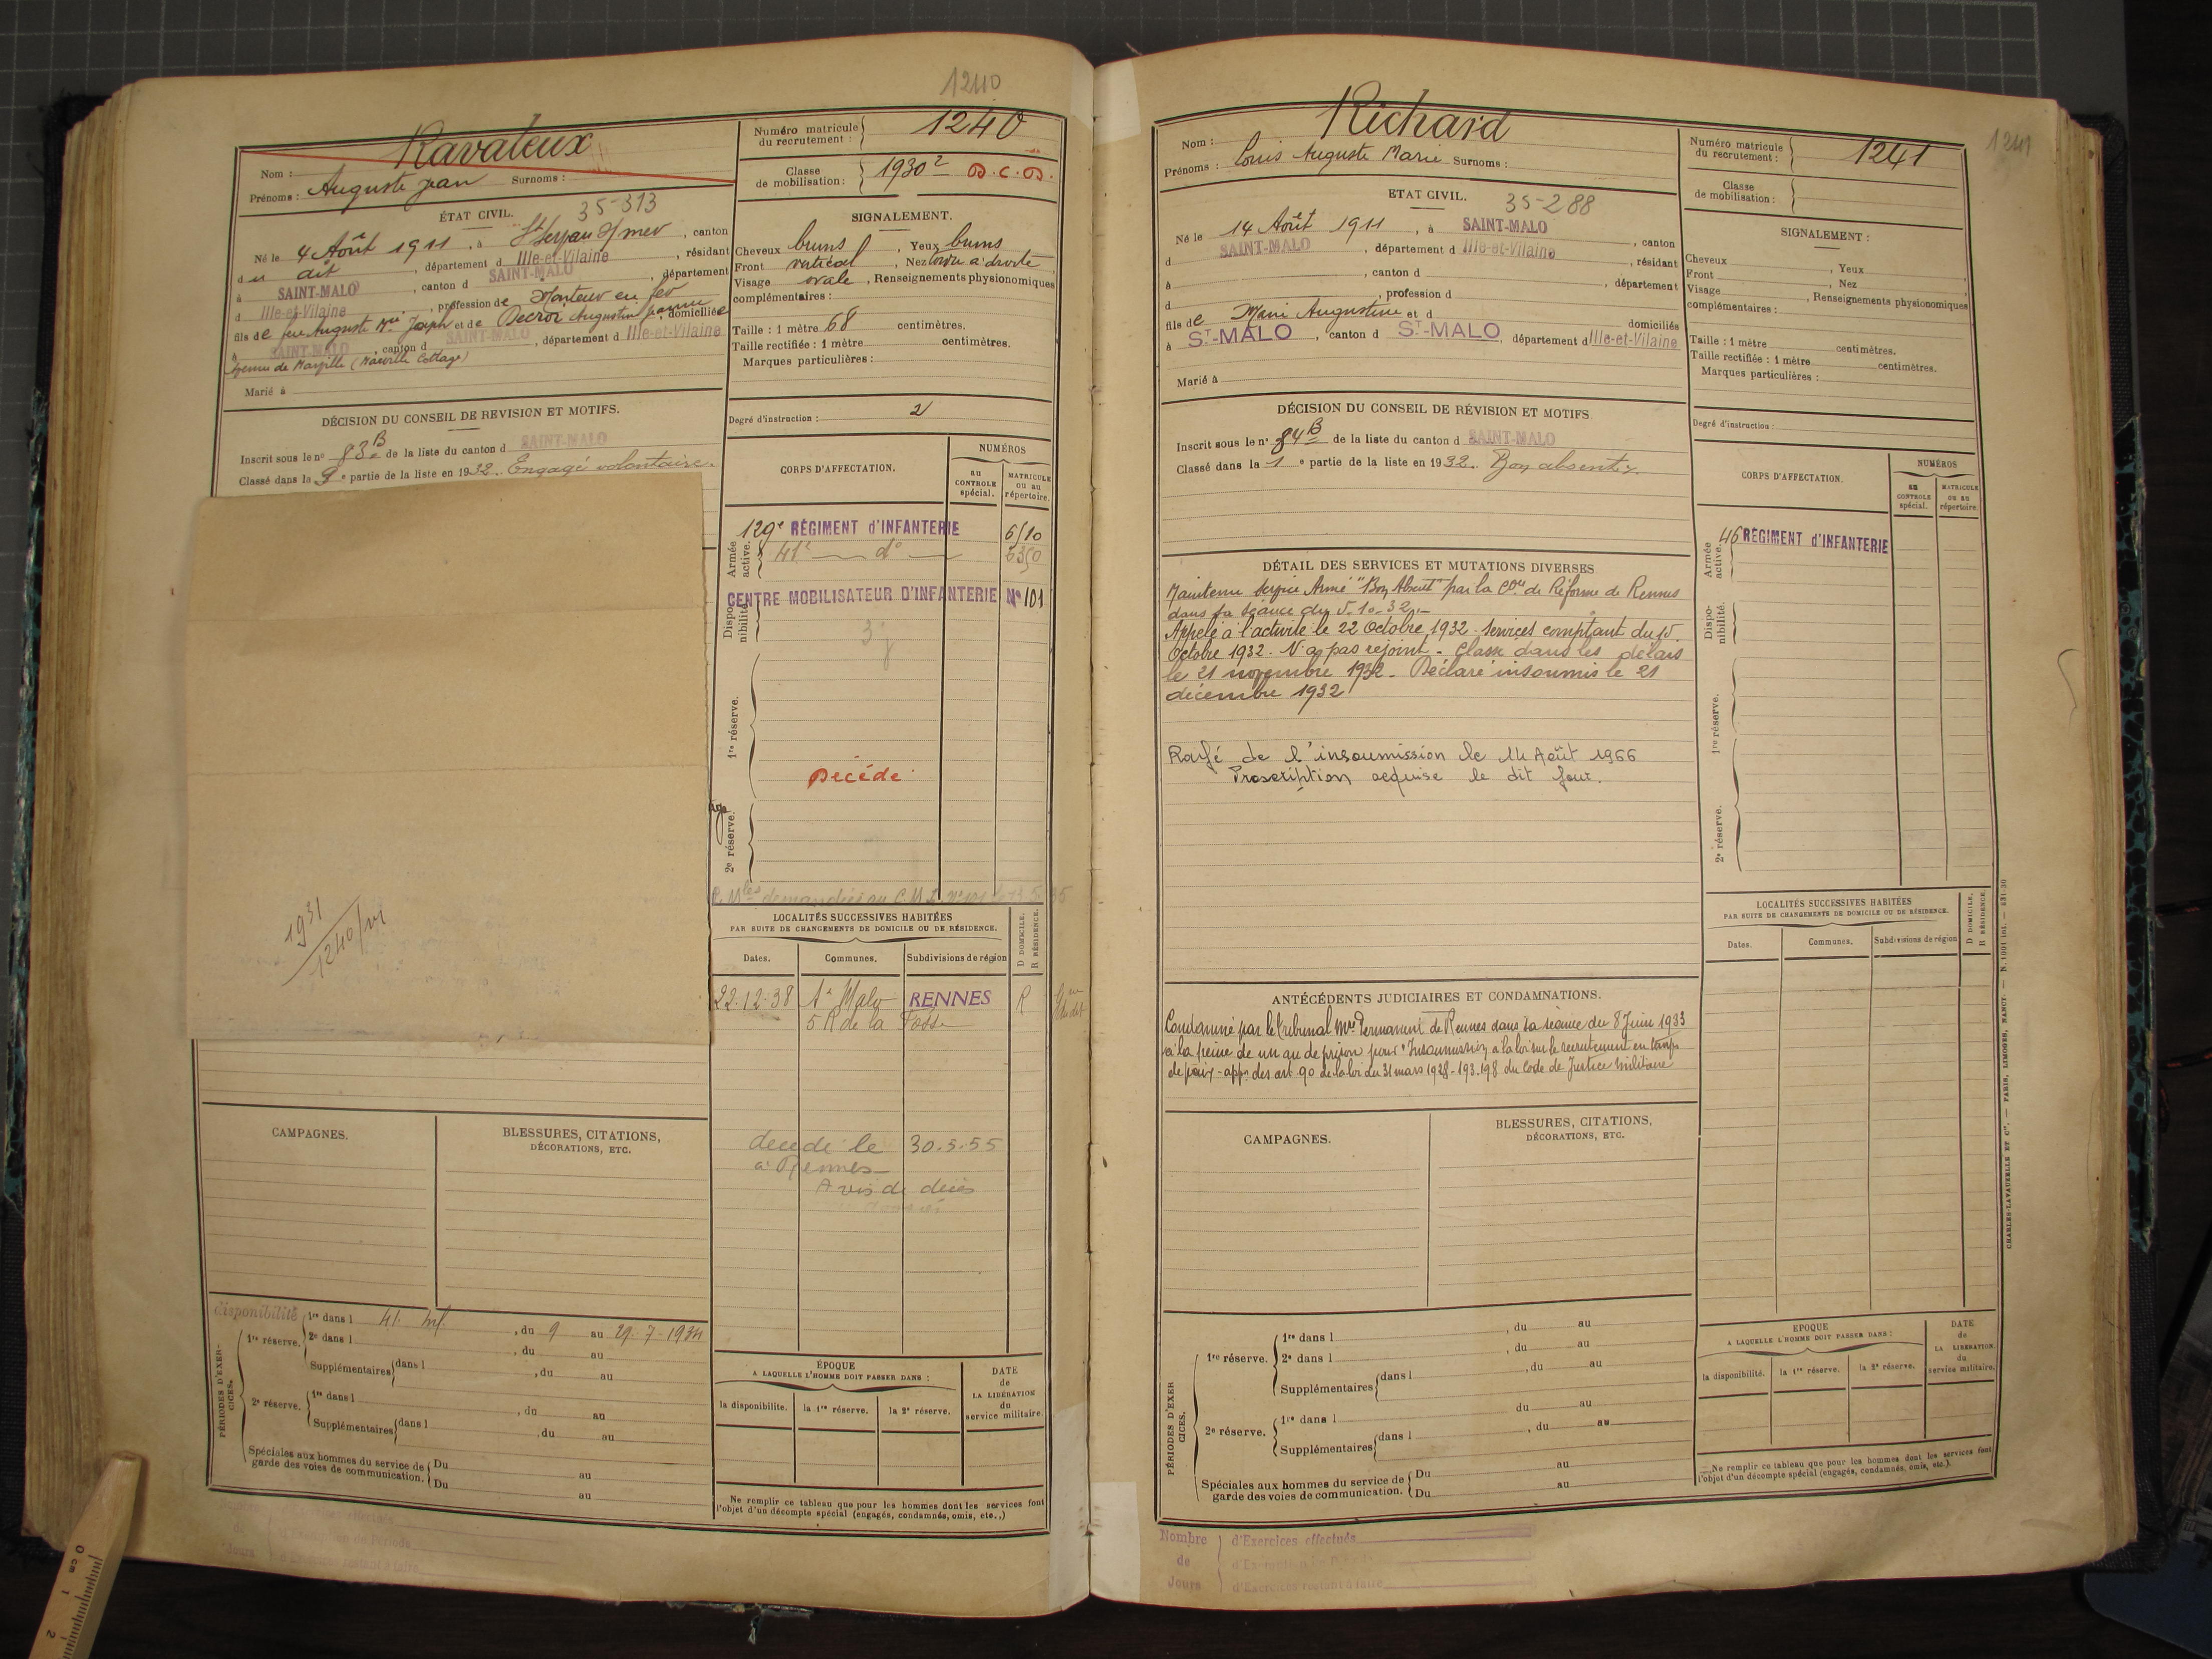 1240
Ravaleux
Nom :
Prénoms : Auguste Jean Surnoms :
Numéro matricule du recrutement : 1240
Classe de mobilisation : 1930² D.C.D.
ÉTAT CIVIL. 35-313
Né le 4 Août 1911, à St Servan s/mer, canton
du dit, département d Ille-et-Vilaine, résidant
à SAINT-MALO, canton d SAINT-MALO, département
d Ille-et-Vilaine, profession de Monteur en fer
fils de feu Auguste Joseph et de Augustine, domiciliée
à SAINT-MALO, canton d SAINT-MALO, département d Ille-et-Vilaine
Marié à
SIGNALEMENT.
Cheveux bruns, Yeux bruns
Front vertical, Nez tordu à droite
Visage ovale, Renseignements physionomiques
complémentaires :
Taille : 1 mètre 68 centimètres.
Taille rectifiée : 1 mètre centimètres.
Marques particulières :
Degré d'instruction : 2
DÉCISION DU CONSEIL DE REVISION ET MOTIFS.
Inscrit sous le nº 83 B de la liste du canton d SAINT-MALO
Classé dans la 9e partie de la liste en 1932. Engagé volontaire.
1931
1240/
CORPS D'AFFECTATION.
NUMÉROS
au CONTROLE spécial.
MATRICULE ou au répertoire.
Armée active.
129e RÉGIMENT d'INFANTERIE 6510
41e dº 6350
Disponibilité.
CENTRE MOBILISATEUR D'INFANTERIE Nº 101
1re réserve.
Décédé
2e réserve.
LOCALITÉS SUCCESSIVES HABITÉES
PAR SUITE DE CHANGEMENTS DE DOMICILE OU DE RÉSIDENCE.
D DOMICILE.
R RÉSIDENCE.
Dates. Communes. Subdivisions de région
22.12.38 St Malo RENNES R
5 R de la Fosse
décédé le 30.5.55
à Rennes
Avis de décès
CAMPAGNES.
BLESSURES, CITATIONS,
DÉCORATIONS, ETC.
disponibilité
PÉRIODES D'EXERCICES.
1re réserve. 1re dans l 41. Inf., du 9 au 29.7.1934
2e dans l , du au
Supplémentaires dans l , du au
2e réserve. 1re dans l , du au
Supplémentaires dans l , du au
Spéciales aux hommes du service de garde des voies de communication. Du au
Du au
ÉPOQUE
A LAQUELLE L'HOMME DOIT PASSER DANS :
la disponibilité. la 1re réserve. la 2e réserve.
DATE de LA LIBÉRATION du service militaire.
Ne remplir ce tableau que pour les hommes dont les services font
l'objet d'un décompte spécial (engagés, condamnés, omis, etc..)
1241
Richard
Nom :
Prénoms : Louis Auguste Marie Surnoms :
Numéro matricule du recrutement : 1241
Classe de mobilisation :
ETAT CIVIL. 35-288
Né le 14 Août 1911, à SAINT-MALO, canton
d SAINT-MALO, département d Ille-et-Vilaine, résidant
à , canton d , département
d , profession d
fils de Marie Augustine et d domiciliés
à ST-MALO, canton d ST-MALO, département d Ille-et-Vilaine
Marié à
SIGNALEMENT :
Cheveux , Yeux
Front , Nez
Visage , Renseignements physionomiques
complémentaires :
Taille : 1 mètre centimètres.
Taille rectifiée : 1 mètre centimètres.
Marques particulières :
Degré d'instruction :
DÉCISION DU CONSEIL DE RÉVISION ET MOTIFS.
Inscrit sous le nº 84 B de la liste du canton d SAINT-MALO
Classé dans la 1e partie de la liste en 1932. Bon absent.
DÉTAIL DES SERVICES ET MUTATIONS DIVERSES
Maintenu Service Armé "Bon Absent" par la Con de Réforme de Rennes
dans sa séance du 5.10.32.
Appelé à l'activité le 22 Octobre 1932. Services comptant du 15
Octobre 1932. N'a pas rejoint. Classé dans les délais
le 21 novembre 1932. Déclaré insoumis le 21
décembre 1932
Rayé de l'insoumission le 14 Août 1966
Prescription acquise le dit jour.
CORPS D'AFFECTATION.
NUMÉROS
au CONTROLE spécial.
MATRICULE ou au répertoire.
Armée active.
46 RÉGIMENT d'INFANTERIE
Disponibilité.
1re réserve.
2e réserve.
LOCALITÉS SUCCESSIVES HABITÉES
PAR SUITE DE CHANGEMENTS DE DOMICILE OU DE RÉSIDENCE.
D DOMICILE.
R RÉSIDENCE.
Dates. Communes. Subdivisions de région
ANTÉCÉDENTS JUDICIAIRES ET CONDAMNATIONS.
Condamné par le tribunal Mre Permanent de Rennes dans sa séance du 8 Juin 1933
à la peine de un an de prison pour "Insoumission à la loi sur le recrutement en temps
de paix - appn des art. 90 de la loi du 31 mars 1928 - 193.198 du Code de Justice militaire
CAMPAGNES.
BLESSURES, CITATIONS,
DÉCORATIONS, ETC.
PÉRIODES D'EXERCICES.
1re réserve. 1re dans l , du au
2e dans l , du au
Supplémentaires dans l , du au
2e réserve. 1re dans l du au
Supplémentaires dans l , du au
Spéciales aux hommes du service de garde des voies de communication. Du au
Du au
EPOQUE
A LAQUELLE L'HOMME DOIT PASSER DANS :
la disponibilité. la 1re réserve. la 2e réserve.
DATE de LA LIBÉRATION du service militaire.
Ne remplir ce tableau que pour les hommes dont les services font
l'objet d'un décompte spécial (engagés, condamnés, omis, etc.).
Nombre de Jours
d'Exercices effectués
d'Exercices restant à faire
CHARLES-LAVAUZELLE ET Cie. — PARIS, LIMOGES, NANCY.
0 cm 1 2